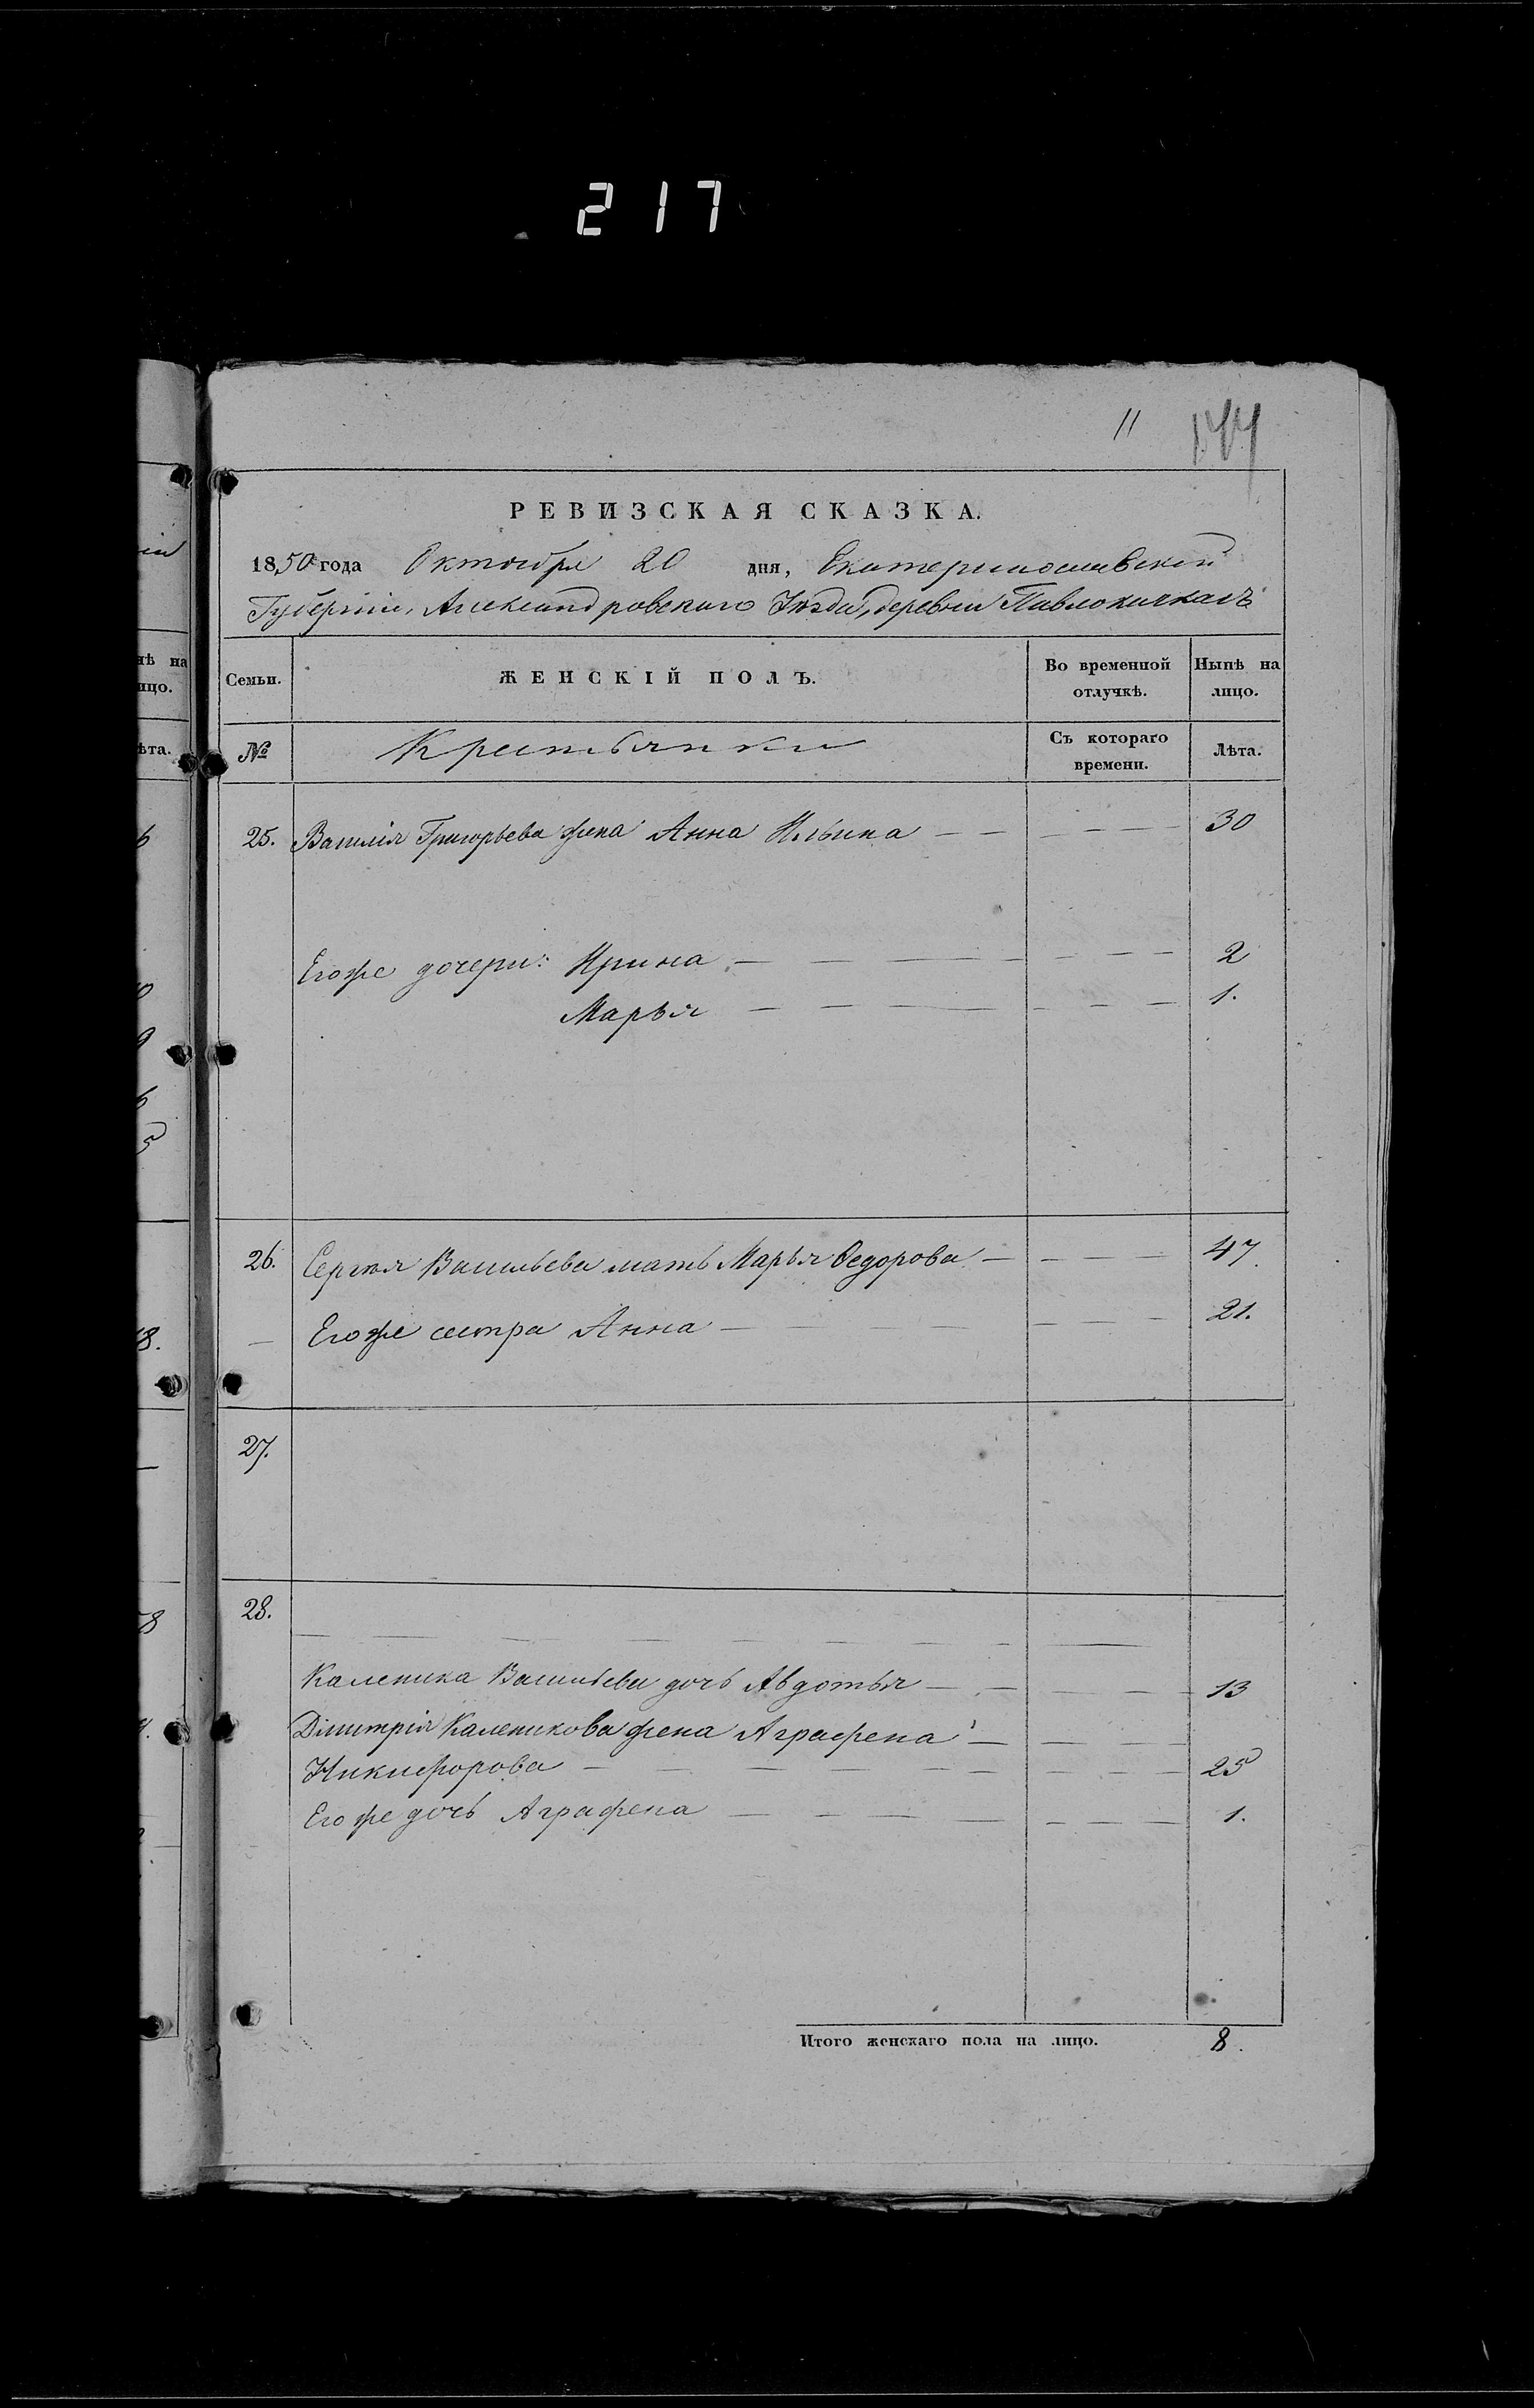 217
11 144
РЕВИЗСКАЯ СКАЗКА.
1850 года Октября 20 дня, Екатеринославской
Губерніи, Александровскаго Уѣзда, деревни Павлокичкасъ
Семьи. ЖЕНСКІЙ ПОЛЪ. Во временной отлучкѣ. Нынѣ на лицо.
№ Крестьянки Съ котораго времени. Лѣта.
25. Василія Григорьева жена Анна Ильина 30
Егоже дочери: Ирина 2
Марья 1.
26. Сергѣя Васильева мать Марья Ѳедорова 47.
Егоже сестра Анна 21.
27.
28.
Каленика Васильева дочь Авдотья 13
Димитрія Каленикова жена Аграфена
Никифорова 25
Егоже дочь Аграфена 1.
Итого женскаго пола на лицо. 8.